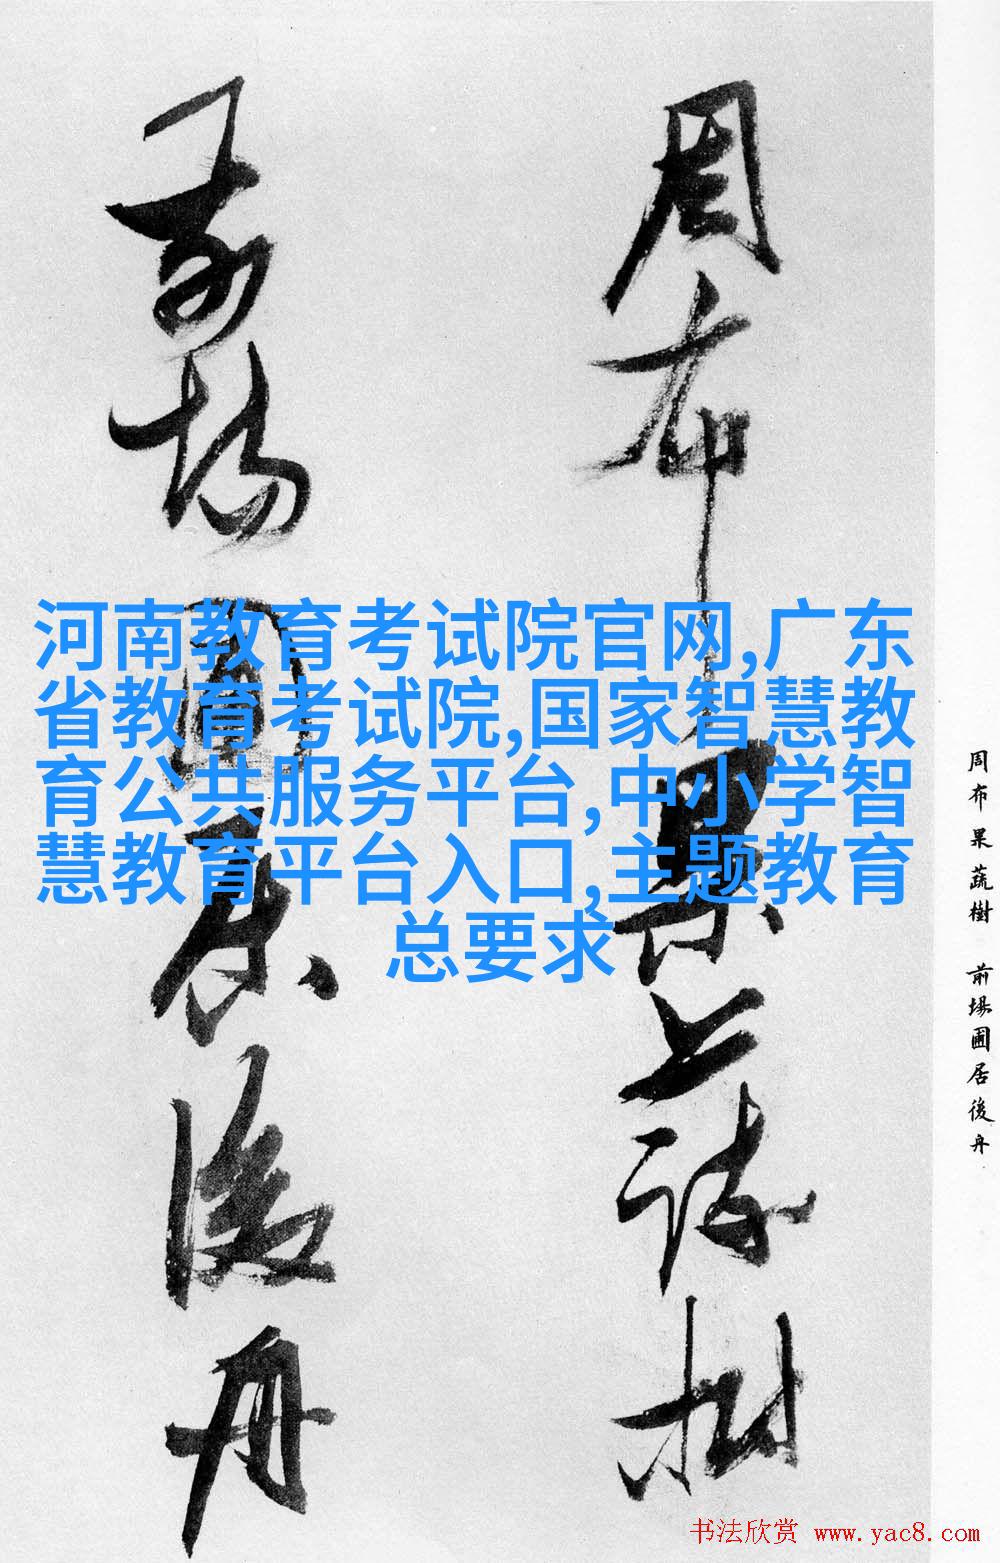 河南教育考试院官网,广东
省教育考试院,国家智慧教
育公共服务平台,中小学智
慧教育平台入口,主题教育
总要求
周布果蔬樹
前場圃居後舟
周布果蔬樹 前場圃居後舟
书法欣赏 www.yac8.com